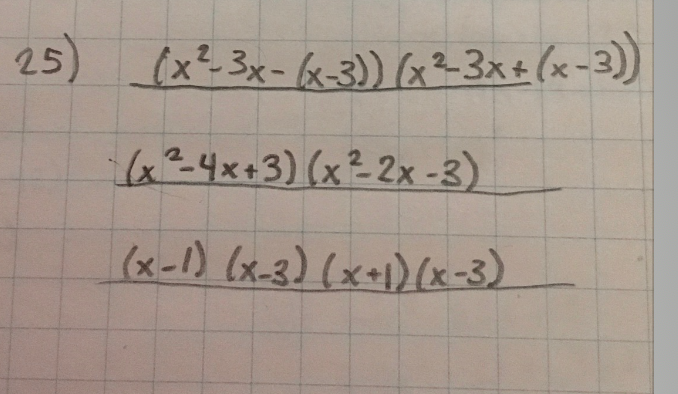 25) (x²-3x-(x-3))(x²-3x+(x-3))
(x²-4x+3)(x²-2x-3)
(x-1)(x-3)(x+1)(x-3)